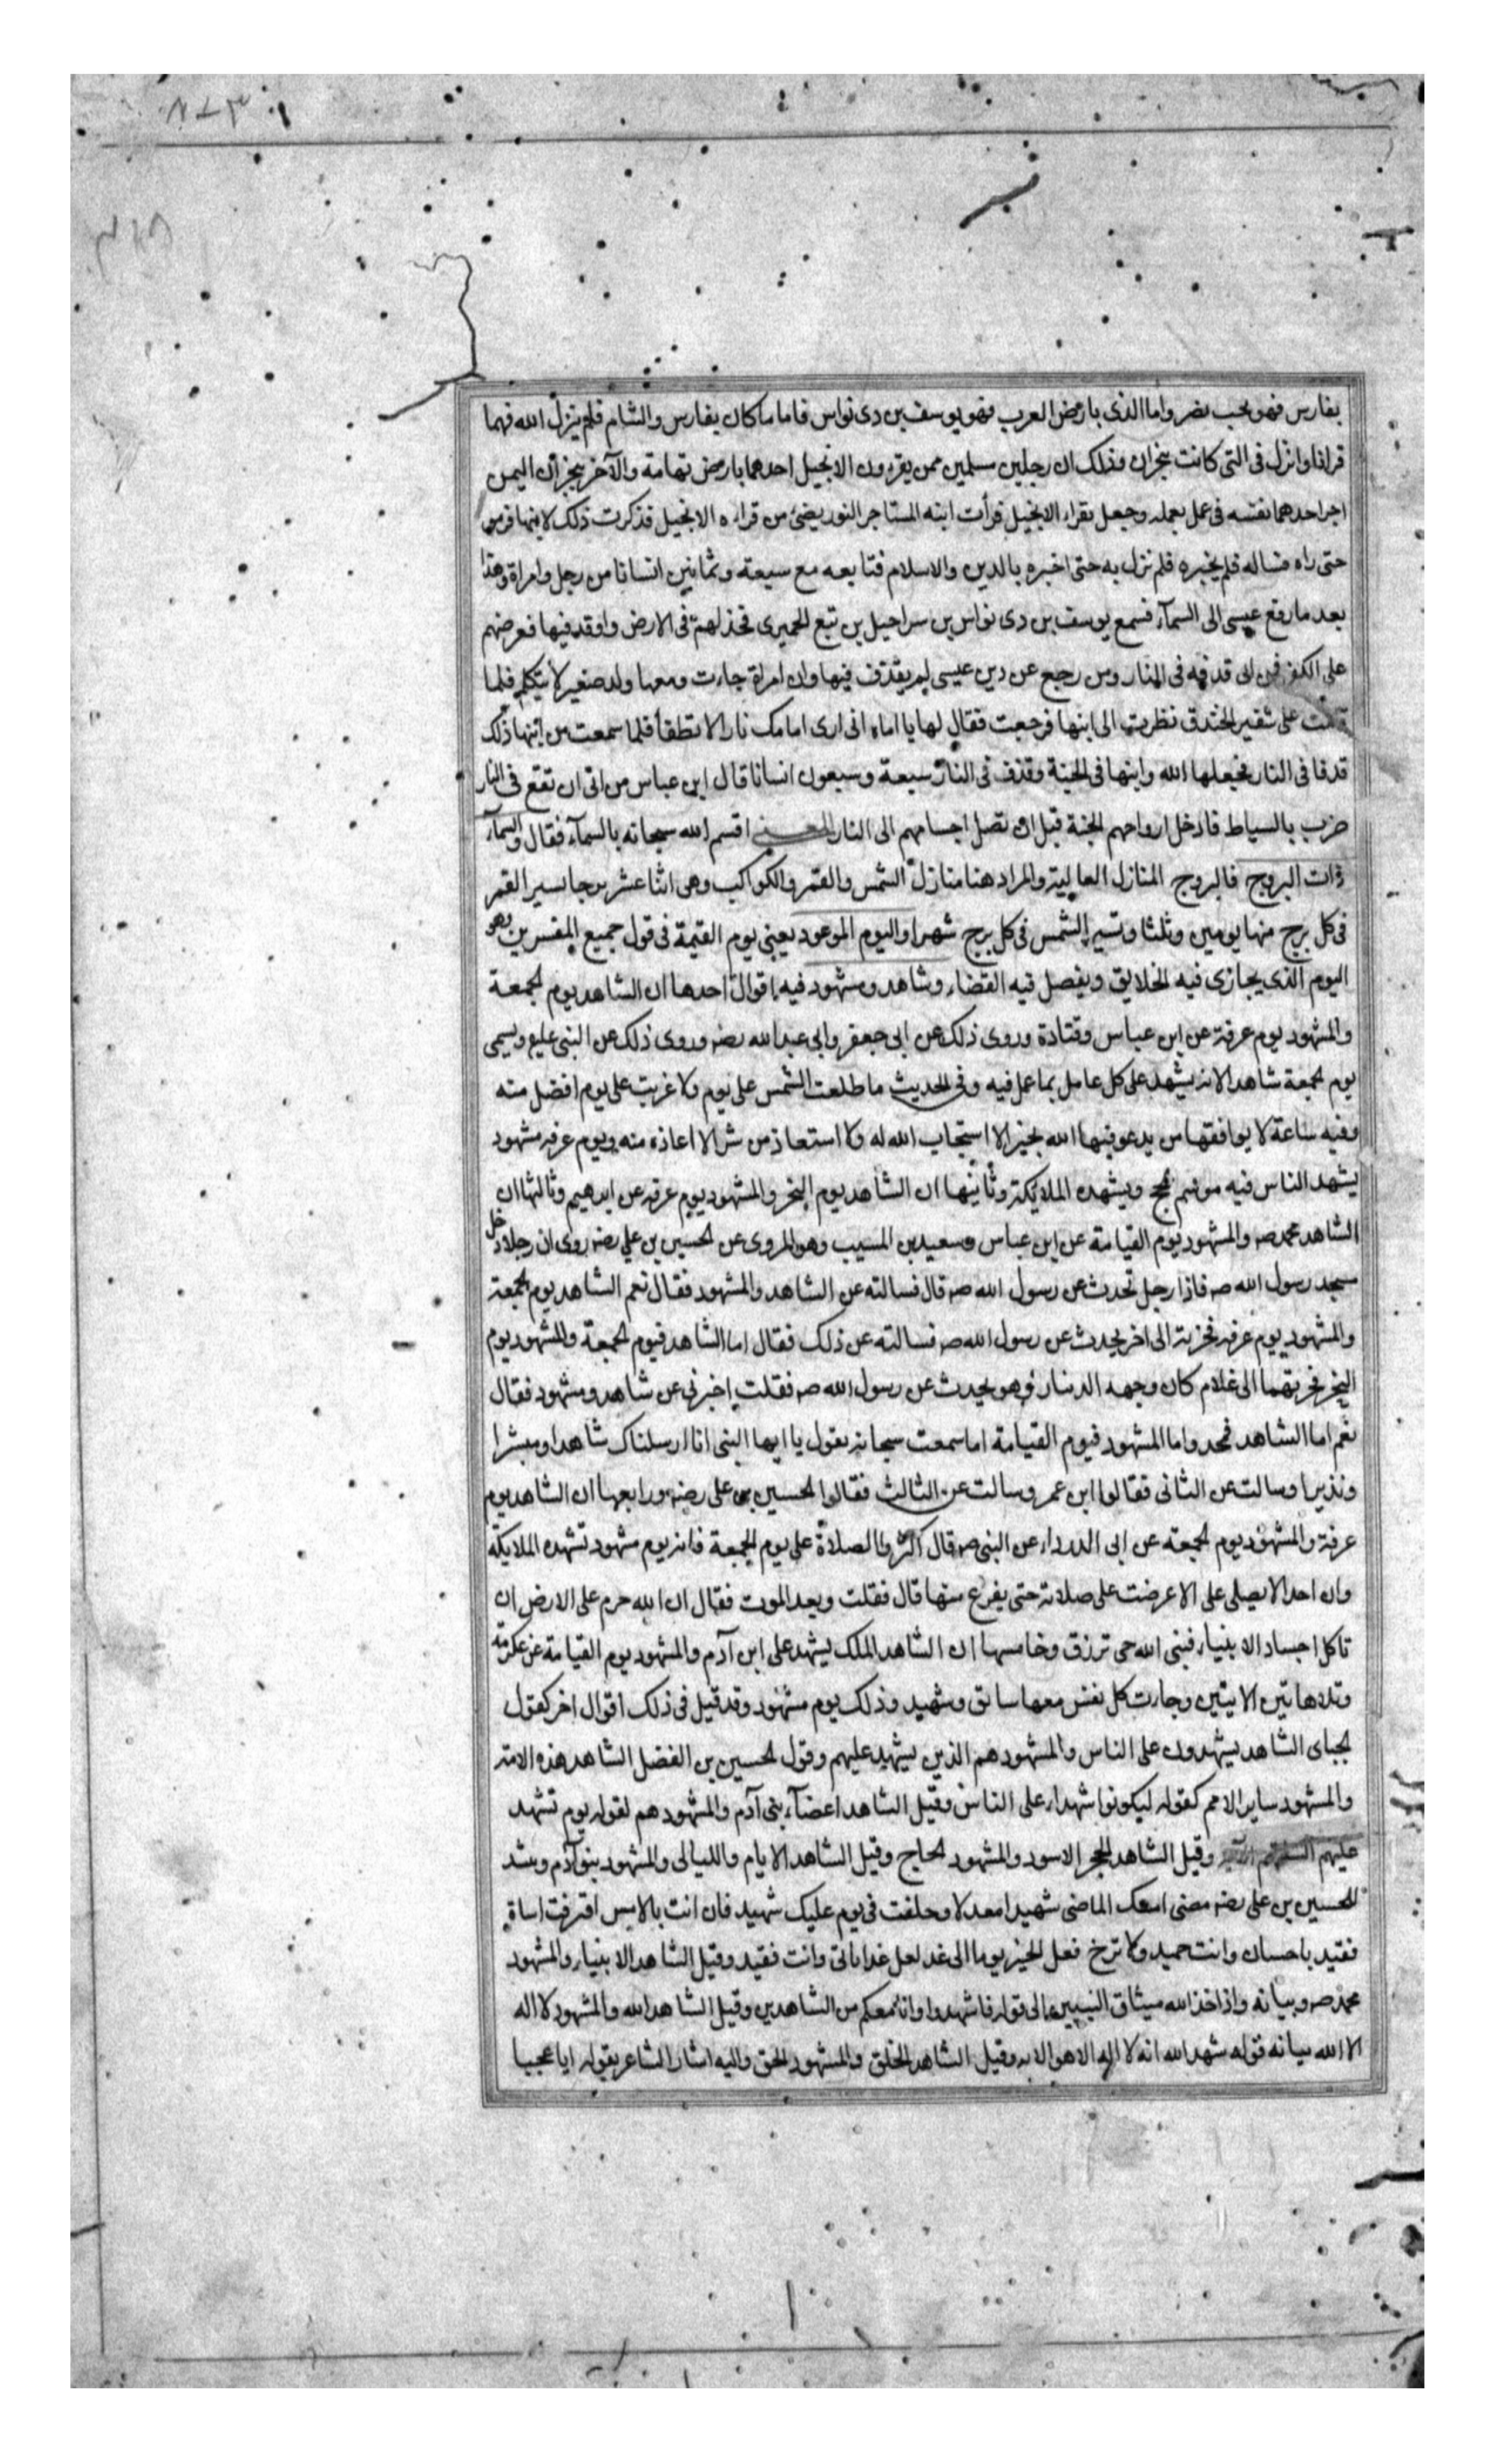 بفارس فهو بحب نصر واما الذى بارض العرب فهو يوسف بن دى نواس فاما ما كان بفارس والشام فلم ينزل الله فيهما
قرانا وانزل فى التى كانت بنجران وذلك ان رجلين مسلمين ممن يقرءون الانجيل احدهما بارض تهامة والآخر بنجران اليمن
اجر احدهما نفسه فى عمل يعمله وجعل يقراء الانجيل فرأت ابنه المستاجر النور يضئ من قراءه الانجيل فذكرت ذلك لابيها
حتى راه فساله فلم يخبره فلم نزل به حتى اخبره بالدين والاسلام فتابعه مع سبعة وثمانين انسانا من رجل وامراة وهذا
بعد ما رفع عيسى الى السمآء فسمع يوسف بن دى نواس بن سراحيل بن تبع الحميرى فخذ لهم فى الارض واوقد فيها فعرضهم
على الكفر فمن ابى قدفه فى النار ومن رجع عن دين عيسى لم يقذف فيها وان امراة جاءت ومعها ولد صغير لا يتكلم فلما
قامت على شفير الخندق نظرت الى ابنها فرجعت فقال لها يا اماه انى ارى امامك نارا لا تطفأ فلما سمعت من ابنها ذلك
قدفا فى النار فجعلها الله وابنها فى الجنة وقذف فى النار سبعة وسبعون انسانا قال ابن عباس من ابى ان تقع فى النار
ضرب بالسياط فادخل ارواحهم الجنة قبل ان تصل اجسامهم الى النار المعنى اقسم الله سبحانه بالسمآء فقال والسمآء
ذات البروج فالبروج المنازل العالية والمراد هنا منازل الشمس والقمر والكواكب وهى اثنا عشر برجا يسير القمر
فى كل برج منها يومين وثلثا وتسير الشمس فى كل برج شهرا واليوم الموعود يعنى يوم القيمة فى قول جميع المفسرين وهو
اليوم الذى يجازى فيه الخلايق ويفصل فيه القضاء وشاهد ومشهود فيه اقوال احدها ان الشاهد يوم الجمعة
والمشهود يوم عرفة عن ابن عباس وقتادة وروى ذلك عن ابى جعفر وابى عبد الله رضه وروى ذلك عن النبى عليع ويسمى
يوم الجمعة شاهدا لانه يشهد على كل عامل بما عمل فيه وفى الحديث ما طلعت الشمس على يوم ولا غربت على يوم افضل منه
وفيه ساعة لا يوافقها من يدعو فيها الله بخير الا استجاب الله له ولا استعاذ من شر الا اعاذه منه ويوم عرفه مشهود
يشهد الناس فيه موسم الحج ويشهده الملايكة وثانيها ان الشاهد يوم النحر والمشهود يوم عرفه عن ابرهيم وثالثها ان
الشاهد محمد صه والمشهود يوم القيامة عن ابن عباس وسعيد بن المسيب وهو المروى عن الحسين بن علي رضه روى ان رجلا دخل
مسجد رسول الله صه فاذا رجل تحدث عن رسول الله صه قال فسالته عن الشاهد والمشهود فقال نعم الشاهد يوم الجمعة
والمشهود يوم عرفه فجزته الى اخر يحدث عن رسول الله صه فسالته عن ذلك فقال اما الشاهد فيوم الجمعة والمشهود يوم
النحر فجزتهما الى غلام كان وجهه الدينار وهو يحدث عن رسول الله صه فقلت اخبرنى عن شاهد ومشهود فقال
نعم اما الشاهد فمحمد واما المشهود فيوم القيامة اما سمعت سبحانه يقول يا ايها النبى انا ارسلناك شاهدا ومبشرا
ونذيرا وسالت عن الثانى فقالوا ابن عمر وسالت عن الثالث فقالوا الحسين بن على رضه ورابعها ان الشاهد يوم
عرفة والمشهود يوم الجمعة عن ابى الدرداء عن النبى صه قال اكثروا الصلاة على يوم الجمعة فانه يوم مشهود تشهده الملايكة
وان احدا لا يصلى على الا عرضت على صلاته حتى يفرغ منها قال فقلت وبعد الموت فقال ان الله حرم على الارض ان
تاكل اجساد الانبياء فنبى الله حى ترزق وخامسها ان الشاهد الملك يشهد على ابن آدم والمشهود يوم القيامة عن عكرمة
وتلا هاتين الايتين وجاءت كل نفس معها سائق وشهيد وذلك يوم مشهود وقد قيل فى ذلك اقوال اخر كقول
الجباى الشاهد يشهدون على الناس والمشهود هم الذين يشهد عليهم وقول الحسين بن الفضل الشاهد هذه الامة
والمشهود ساير الامم كقوله ليكونوا شهداء على الناس وقيل الشاهد اعضآء بنى آدم والمشهود هم لقوله يوم تشهد
عليهم السنتهم الآية وقيل الشاهد الحجر الاسود والمشهود الحاج وقيل الشاهد الايام والليالى والمشهود بنو آدم وينشد
للحسين بن على رضه مضى امسك الماضى شهيدا معدلا وخلفت فى يوم عليك شهيد فان انت بالامس اقترفت اساة
فقيد باحسان وانت حميد ولا ترخ فعل الخير يوما الى غد لعل غدا ياتى وانت فقيد وقيل الشاهد الانبياء والمشهود
محمد صه وبيانه واذ اخذ الله ميثاق النبيين الى قوله فاشهدوا وانا معكم من الشاهدين وقيل الشاهد الله والمشهود لا اله
الا الله بيانه قوله شهد الله انه لا اله الا هو الايه وقيل الشاهد الخلق والمشهود الحق واليه اشار الشاعر بقوله ايا عجبا